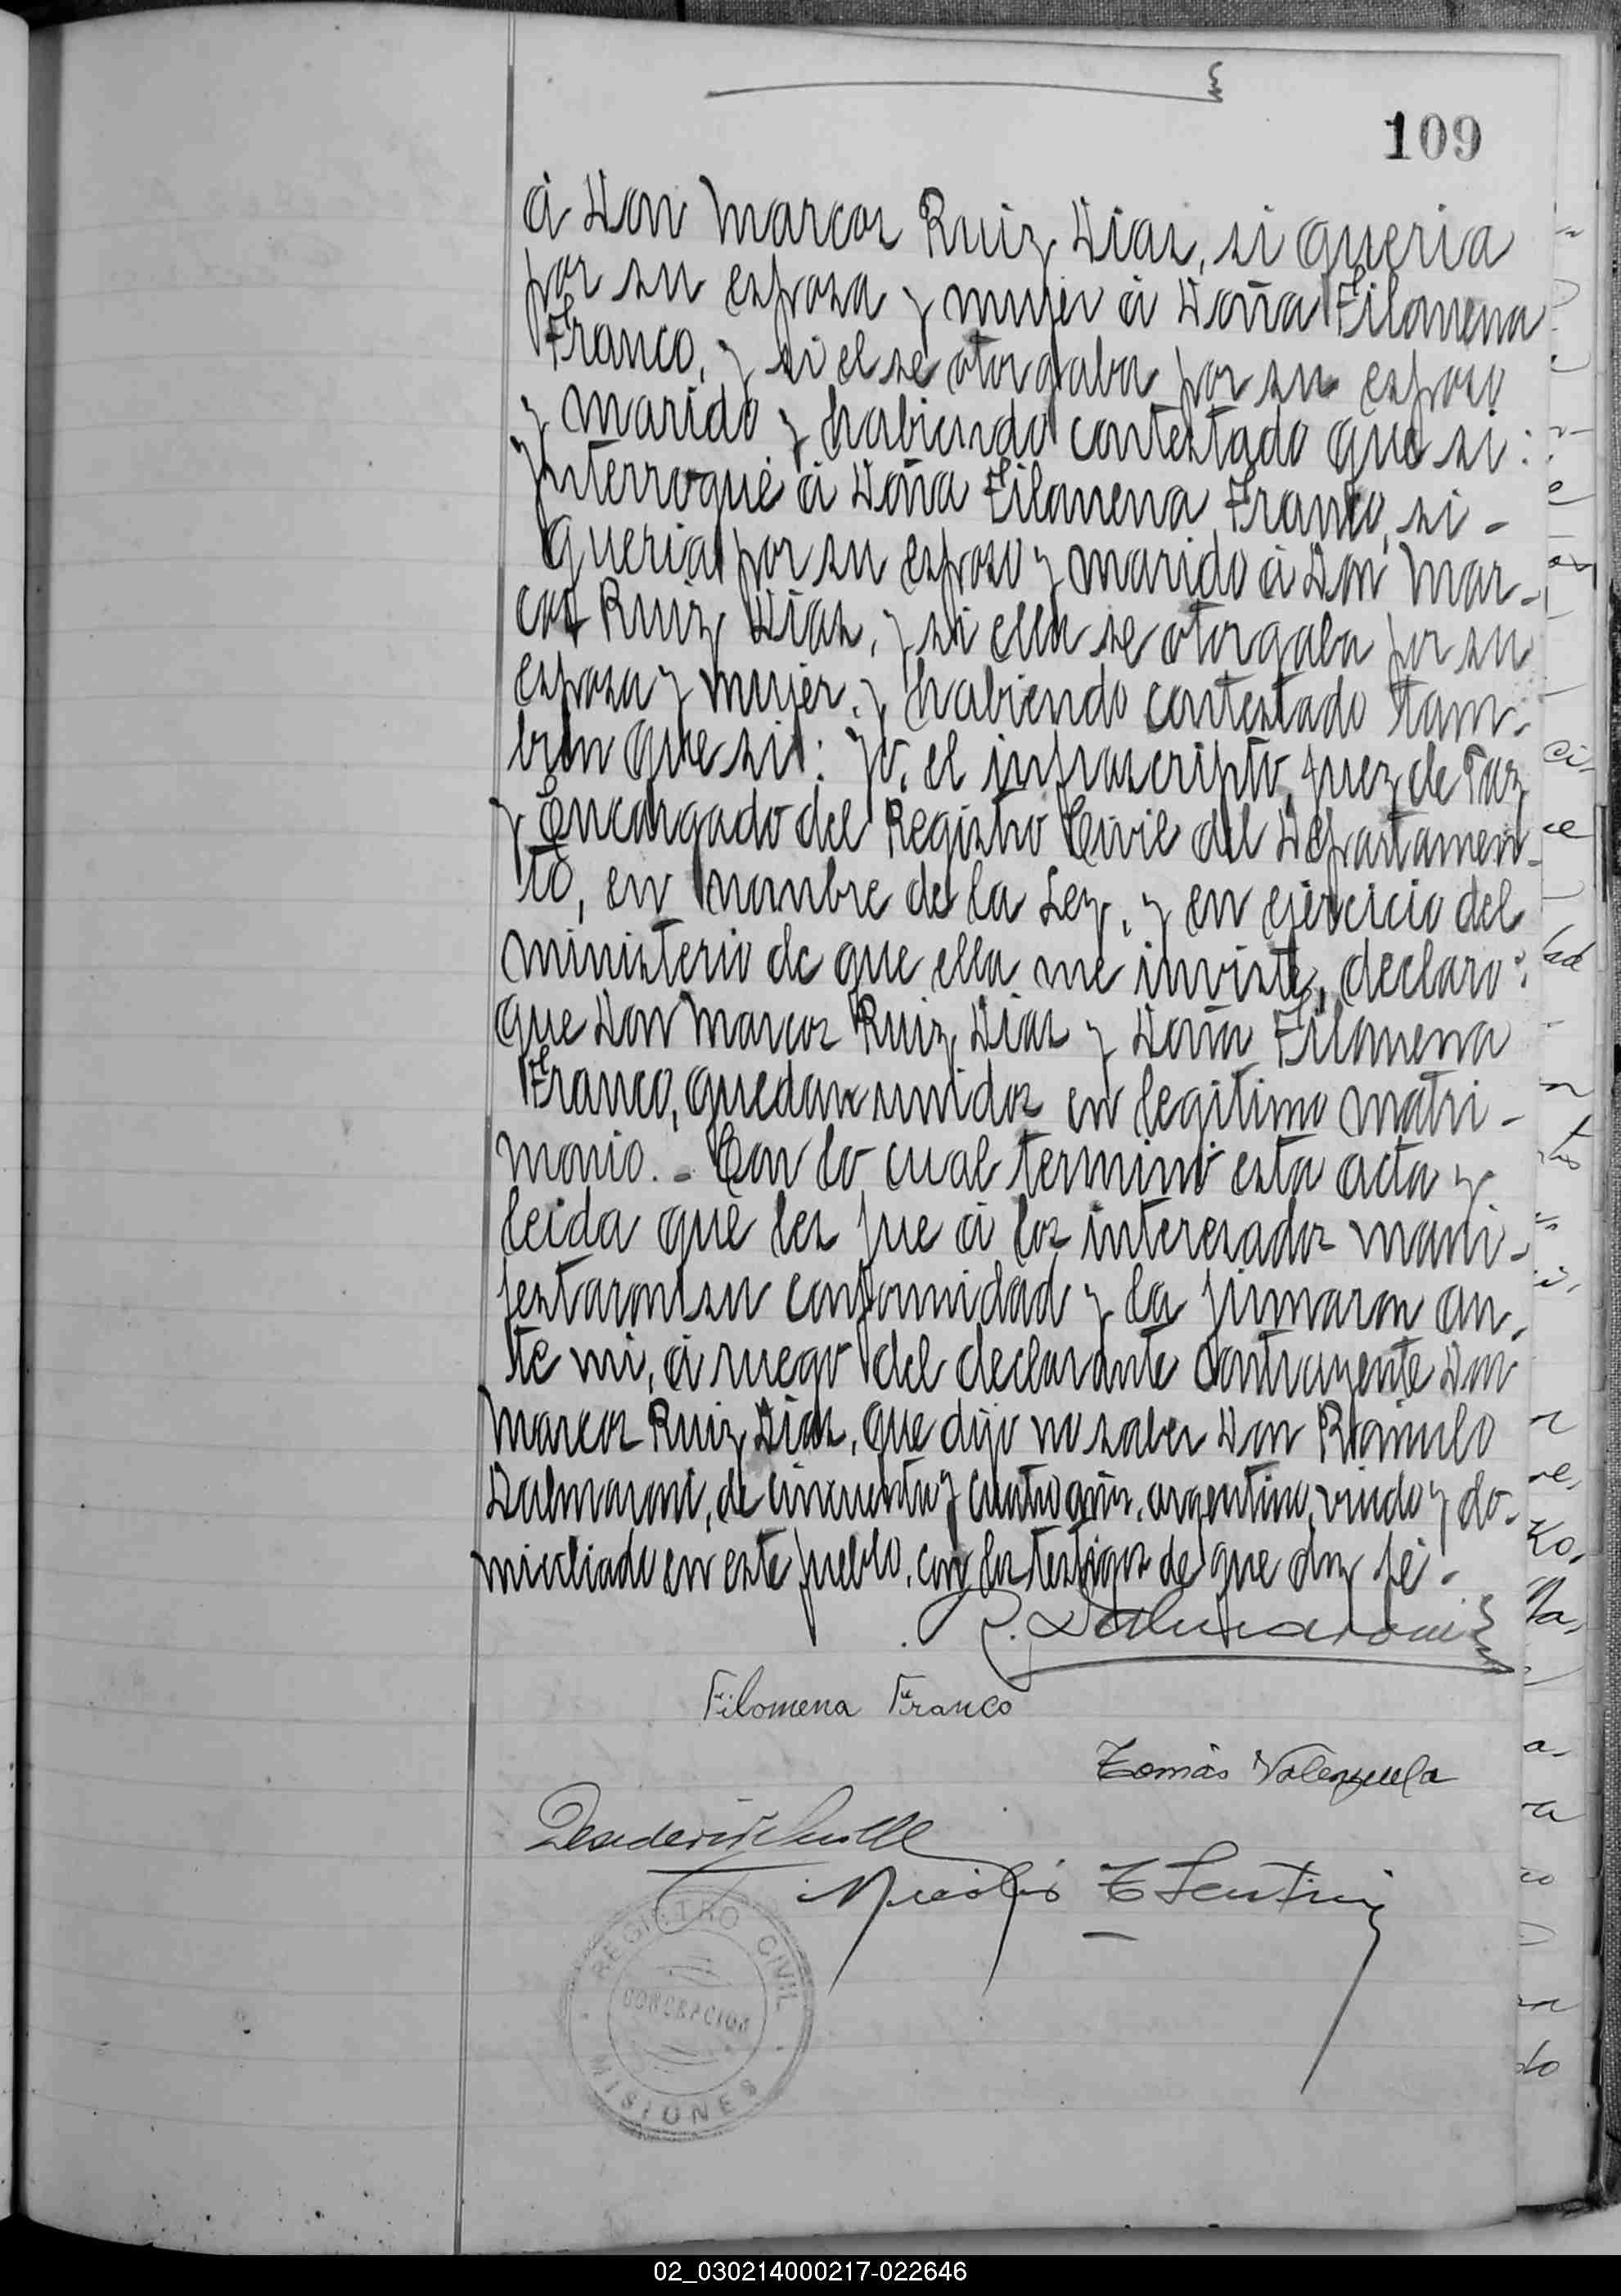 109
á Don Marcos Ruiz Dias, si queria
por su esposa y mujer á Doña Filomena
Franco, y si el se otorgaba por su esposo
y marido y habiendo contestado que si:
Interrogué á Doña Filomena Franco, si -
queria por su esposo y marido á Don Mar-
cos Ruiz Dias, y si ella se otorgaba por su
esposa y mujer, y habiendo contestado tam-
bien que si: Yo, el infrascripto, Juez de Paz
y Encargado del Registro Civil del Departamen-
to, en nombre de la Ley, y en ejercicio del
ministerio de que ella me inviste, declaro:
que Don Marcos Ruiz Dias y Doña Filomena
Franco, quedan unidos en legitimo matri-
monio. - Con lo cual terminó esta acta y
leida que les fue á los interesados mani-
festaron su conformidad y la firmaron an-
te mi, á ruego del declarante contrayente Don
Marcos Ruiz Dias, que dijo no saber Don Rómulo
Dalmaroni, de cincuenta y cuatro años, argentino, viudo y do-
miciliado en este pueblo, con los testigos de que doy fé.
R. Dalmaroni
Filomena Franco
Tomás Valenzuela
Desiderio
Nicolás T
REGISTRO CIVIL
CONCEPCION
MISIONES
02_030214000217-022646